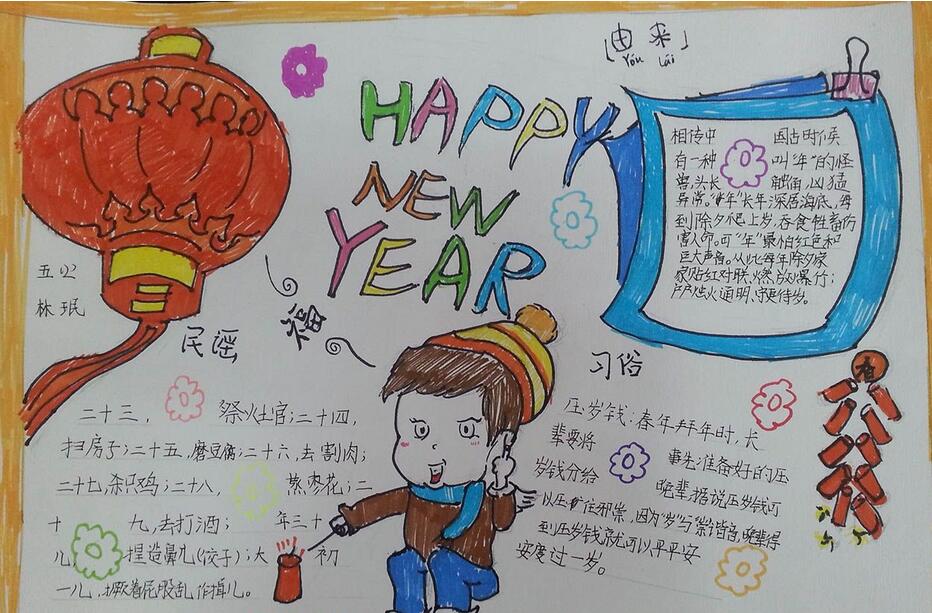 「由来」
Yóu lái
HAPPY
NEW
YEAR
相传中国古时候
有一种叫“年”的怪
兽,头长触角,凶猛
异常。“年”长年深居海底,每
到除夕爬上岁,吞食牲畜伤
害人命。可“年”最怕红色和
巨大声音。从此每年除夕家
家贴红对联、燃放爆竹;
户户烛火通明、守更待岁。
五(2)
林珉
福
民谣
二十三,祭灶官;二十四,
扫房子;二十五,磨豆腐;二十六,去割肉;
二十七,杀只鸡;二十八,蒸枣花;二
十九,去打酒;年三十
儿,捏造鼻儿(饺子);大初
一儿,撅着屁股乱作揖儿。
习俗
压岁钱:春年拜年时,长
辈要将事先准备好的压
岁钱分给晚辈,据说压岁钱可
以压住邪祟,因为“岁”与“祟”谐音,晚辈得
到压岁钱就可以平平安
安度过一岁。
春